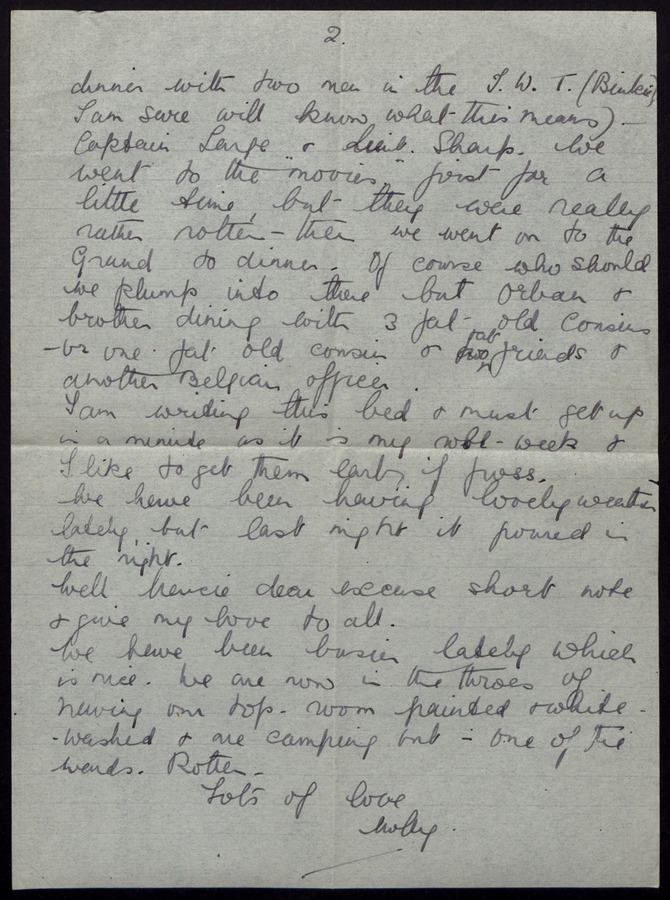 2.
dinner with two men in the I. W. T. (Binkie
I am sure will know what this means). -
Captain Large & Lieut. Sharp. We
went to the "movies" first for a
little time, but they were really
rather rotten - then we went on to the
Grand to dinner. Of course who should
we plump into there but Orban &
brother dining with 3 fat old cousins
- or one fat old cousin & two fat friends &
another Belgian officer.
I am writing this bed & must get up
in a minute as it is my week &
I like to get them early if poss.
We have been having lovely weather
lately, but last night it poured in
the night.
Well dear excuse short note
& give my love to all.
We have been busier lately which
is nice. We are now in the throes of
having our top-room painted & white-
-washed & are camping out - one of the
wards. Rotten -
Lots of love
Molly.